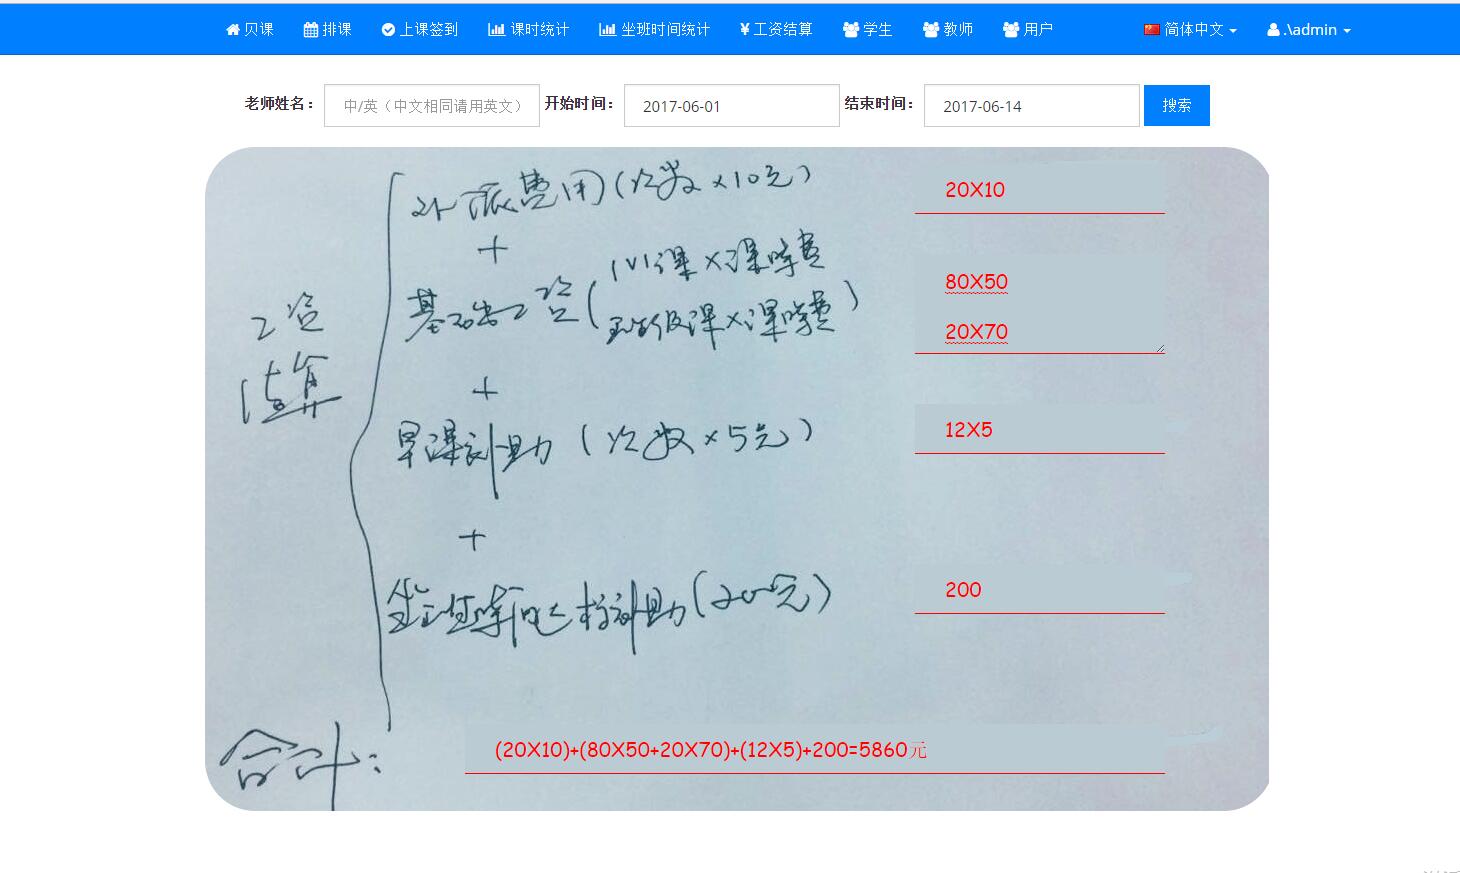 贝课 排课 上课签到 课时统计 坐班时间统计 ¥工资结算 学生 教师 用户 简体中文 .\admin
老师姓名： 中/英（中文相同请用英文） 开始时间： 2017-06-01 结束时间： 2017-06-14 搜索
费用(次数×10元) 20X10
+
基础工资(1V1课×课时费 80X50
班级课×课时费) 20X70
工资
+
早课补助(次数×5元) 12X5
+
坐班时间达标补助(200元) 200
合计: (20X10)+(80X50+20X70)+(12X5)+200=5860元